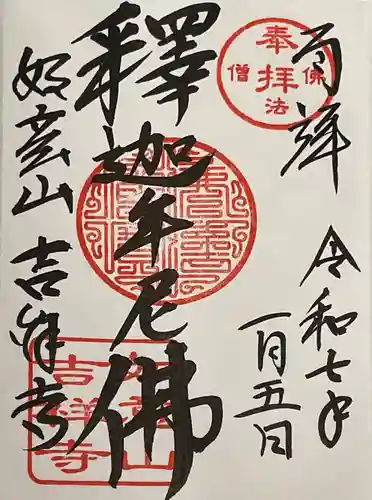 奉拝
佛法僧
百拝
令和七年
一月五日
釋迦牟尼佛
妙玄山 吉祥寺
吉祥寺